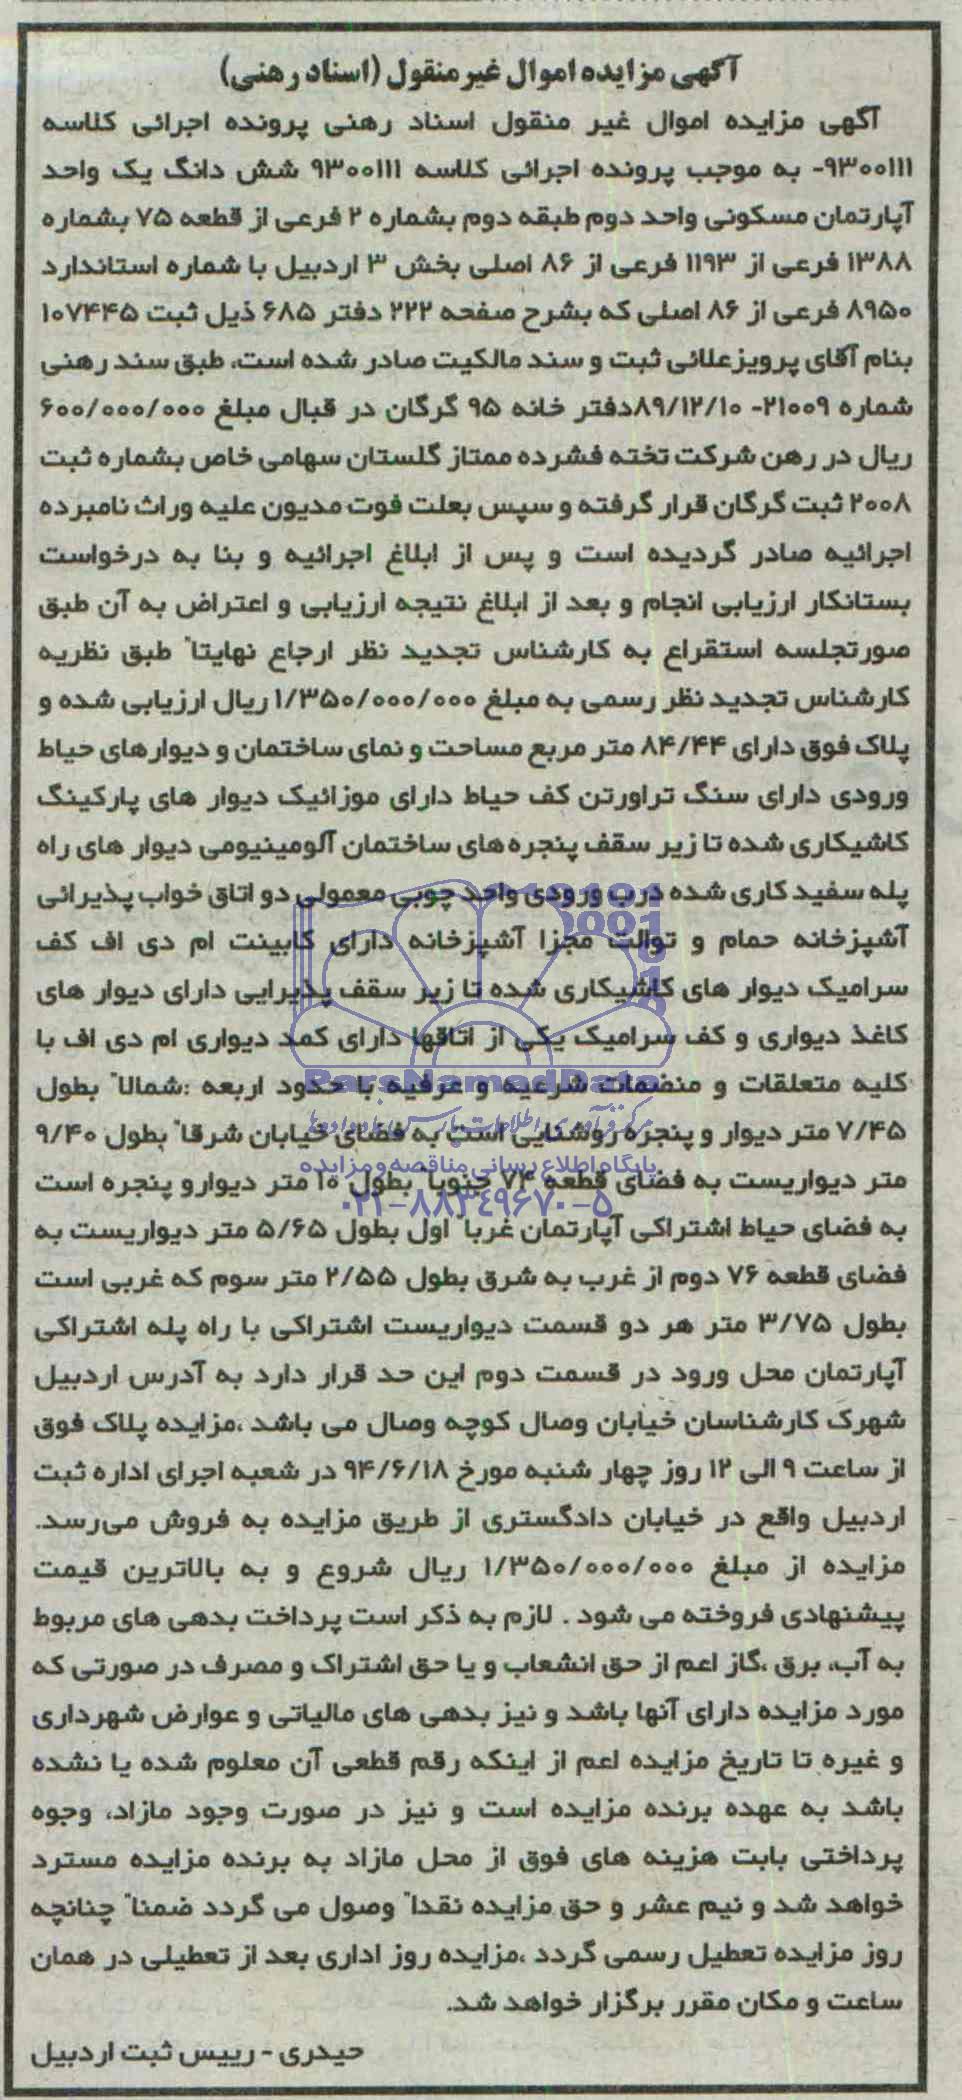 آگهی مزایده اموال غیر منقول (اسناد رهنی)
آگهی مزایده اموال غیر منقول اسناد رهنی پرونده اجرائی کلاسه
۹۳۰۰۱۱۱- به موجب پرونده اجرائی کلاسه ۹۳۰۰۱۱۱ شش دانگ یک واحد
آپارتمان مسکونی واحد دوم طبقه دوم بشماره ۲ فرعی از قطعه ۷۵ بشماره
۱۳۸۸ فرعی از ۱۱۹۳ فرعی از ۸۶ اصلی بخش ۳ اردبیل با شماره استاندارد
۸۹۵۰ فرعی از ۸۶ اصلی که بشرح صفحه ۲۲۲ دفتر ۶۸۵ ذیل ثبت ۱۰۷۴۴۵
بنام آقای پرویز علائی ثبت و سند مالکیت صادر شده است، طبق سند رهنی
شماره ۲۱۰۰۹- ۸۹/۱۲/۱۰دفتر خانه ۹۵ گرگان در قبال مبلغ ۶۰۰/۰۰۰/۰۰۰
ریال در رهن شرکت تخته فشرده ممتاز گلستان سهامی خاص بشماره ثبت
۲۰۰۸ ثبت گرگان قرار گرفته و سپس بعلت فوت مدیون علیه وراث نامبرده
اجرائیه صادر گردیده است و پس از ابلاغ اجرائیه و بنا به درخواست
بستانکار ارزیابی انجام و بعد از ابلاغ نتیجه ارزیابی و اعتراض به آن طبق
صورتجلسه استقراع به کارشناس تجدید نظر ارجاع نهایتا" طبق نظریه
کارشناس تجدید نظر رسمی به مبلغ ۱/۳۵۰/۰۰۰/۰۰۰ ریال ارزیابی شده و
پلاک فوق دارای ۸۴/۴۴ متر مربع مساحت و نمای ساختمان و دیوارهای حیاط
ورودی دارای سنگ تراورتن کف حیاط دارای موزائیک دیوار های پارکینگ
کاشیکاری شده تا زیر سقف پنجره های ساختمان آلومینیومی دیوار های راه
پله سفید کاری شده درب ورودی واحد چوبی معمولی دو اتاق خواب پذیرائی
آشپزخانه حمام و توالت مجزا آشپزخانه دارای کابینت ام دی اف کف
سرامیک دیوار های کاشیکاری شده تا زیر سقف پذیرایی دارای دیوار های
کاغذ دیواری و کف سرامیک یکی از اتاقها دارای کمد دیواری ام دی اف با
کلیه متعلقات و منضمات شرعیه و عرفیه با حدود اربعه :شمالا" بطول
۷/۴۵ متر دیوار و پنجره روشنایی است به فضای خیابان شرقا" بطول ۹/۴۰
متر دیواریست به فضای قطعه ۷۴ جنوبا" بطول ۱۰ متر دیوارو پنجره است
به فضای حیاط اشتراکی آپارتمان غربا" اول بطول ۵/۶۵ متر دیواریست به
فضای قطعه ۷۶ دوم از غرب به شرق بطول ۲/۵۵ متر سوم که غربی است
بطول ۳/۷۵ متر هر دو قسمت دیواریست اشتراکی با راه پله اشتراکی
آپارتمان محل ورود در قسمت دوم این حد قرار دارد به آدرس اردبیل
شهرک کارشناسان خیابان وصال کوچه وصال می باشد ،مزایده پلاک فوق
از ساعت ۹ الی ۱۲ روز چهار شنبه مورخ ۹۴/۶/۱۸ در شعبه اجرای اداره ثبت
اردبیل واقع در خیابان دادگستری از طریق مزایده به فروش می‌رسد.
مزایده از مبلغ ۱/۳۵۰/۰۰۰/۰۰۰ ریال شروع و به بالاترین قیمت
پیشنهادی فروخته می شود . لازم به ذکر است پرداخت بدهی های مربوط
به آب، برق ،گاز اعم از حق انشعاب و یا حق اشتراک و مصرف در صورتی که
مورد مزایده دارای آنها باشد و نیز بدهی های مالیاتی و عوارض شهرداری
و غیره تا تاریخ مزایده اعم از اینکه رقم قطعی آن معلوم شده یا نشده
باشد به عهده برنده مزایده است و نیز در صورت وجود مازاد، وجوه
پرداختی بابت هزینه های فوق از محل مازاد به برنده مزایده مسترد
خواهد شد و نیم عشر و حق مزایده نقدا" وصول می گردد ضمنا" چنانچه
روز مزایده تعطیل رسمی گردد ،مزایده روز اداری بعد از تعطیلی در همان
ساعت و مکان مقرر برگزار خواهد شد.
حیدری - رییس ثبت اردبیل
ParsNamadData
پایگاه اطلاع رسانی مناقصه و مزایده
۰۲۱-۸۸۳۴۹۶۷۰-۵